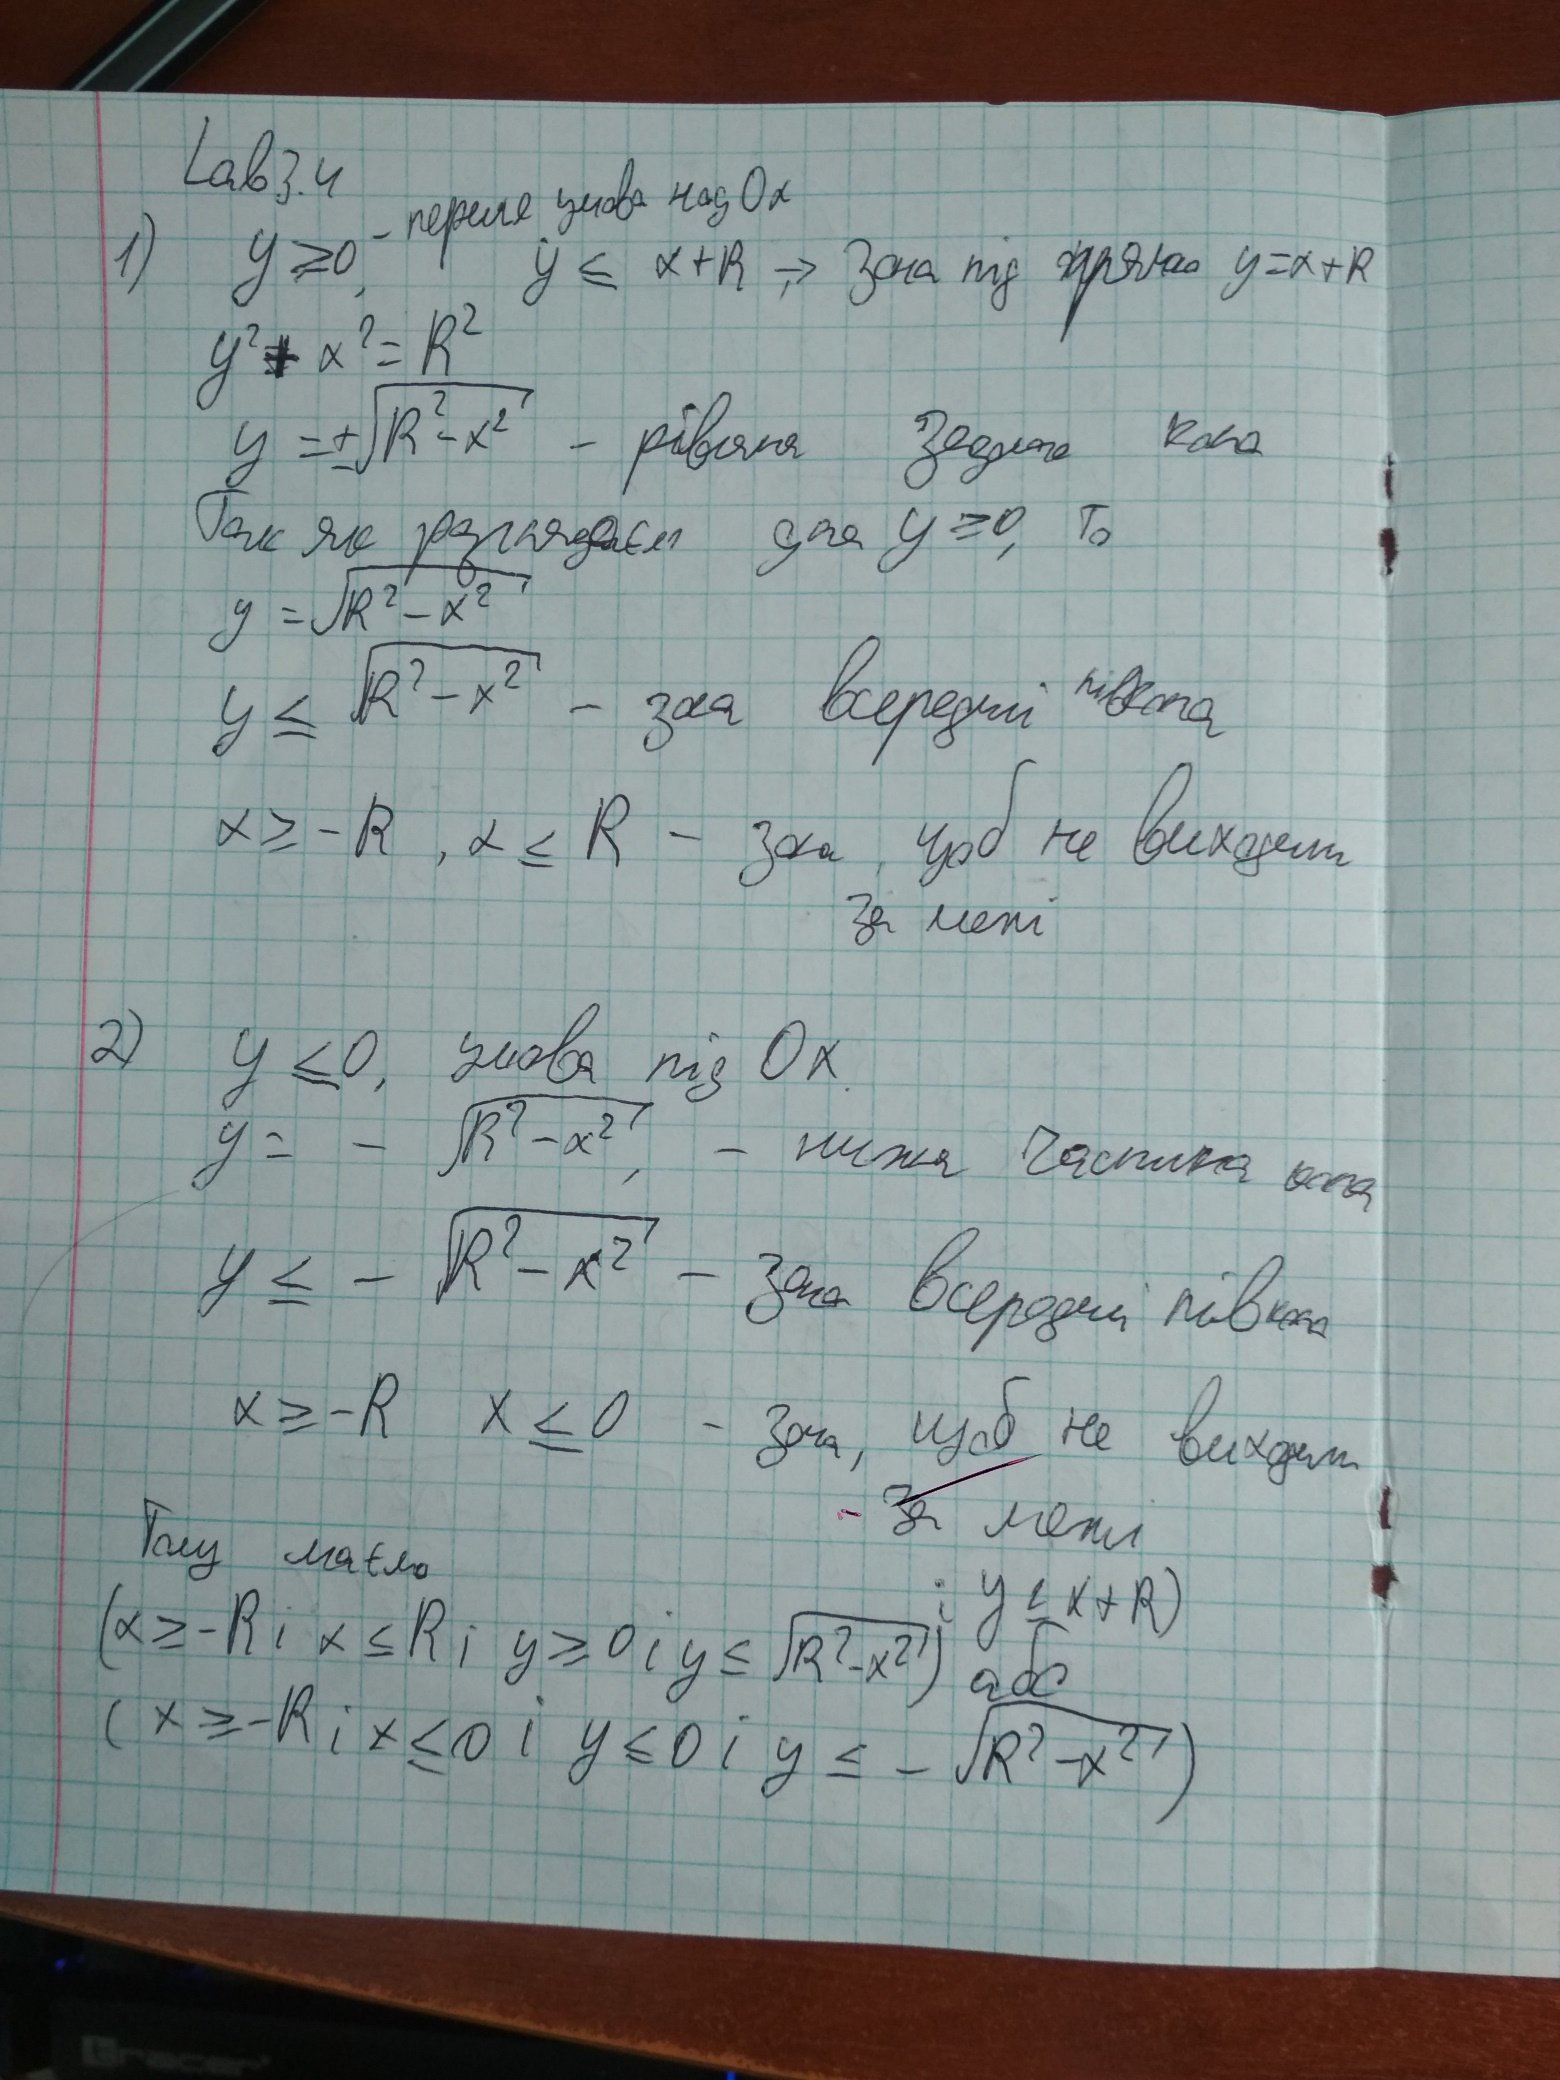 Lab 3.4
1) y ≥ 0, - перша умова над Ox y ≤ x+R → зона під прямою y=x+R
y² + x² = R²
y = ±√(R²-x²) - рівняння задано кола
Так як розглядаєм для y ≥ 0, то
y = √(R²-x²)
y ≤ √(R²-x²) - зона всередині півкола
x ≥ -R, x ≤ R - зона, щоб не виходити
за межі
2) y ≤ 0, умова під Ox.
y = - √(R²-x²), - нижня частина кола
y ≤ - √(R²-x²) - зона всередині півкола
x ≥ -R x ≤ 0 - зона, щоб не виходити
- за межі
Тому маємо
(x ≥ -R і x ≤ R і y ≥ 0 і y ≤ √(R²-x²) і y ≤ x+R) або
(x ≥ -R і x ≤ 0 і y ≤ 0 і y ≤ - √(R²-x²))
Gracer